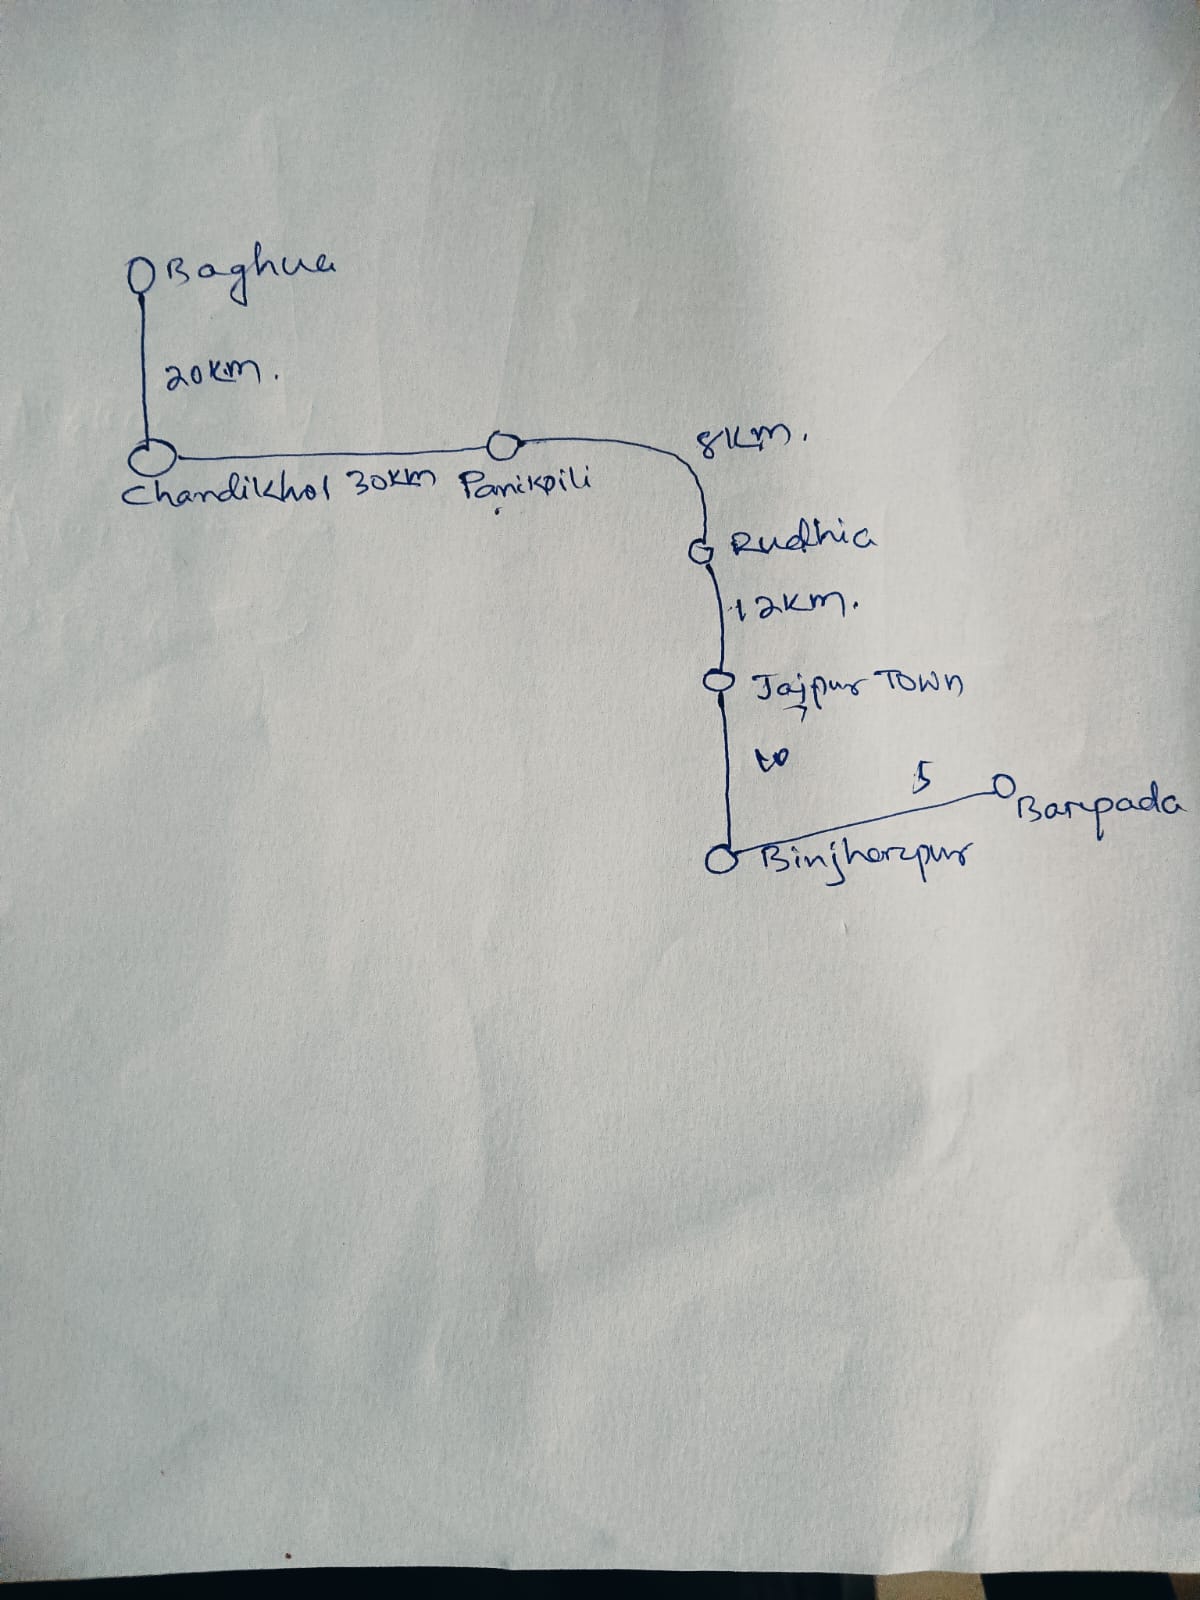 Baghua
20km.
8km.
Chandikhol 30km Panikpili
Rudhia
12km.
Jajpur Town
5
Baripada
Binjharpur